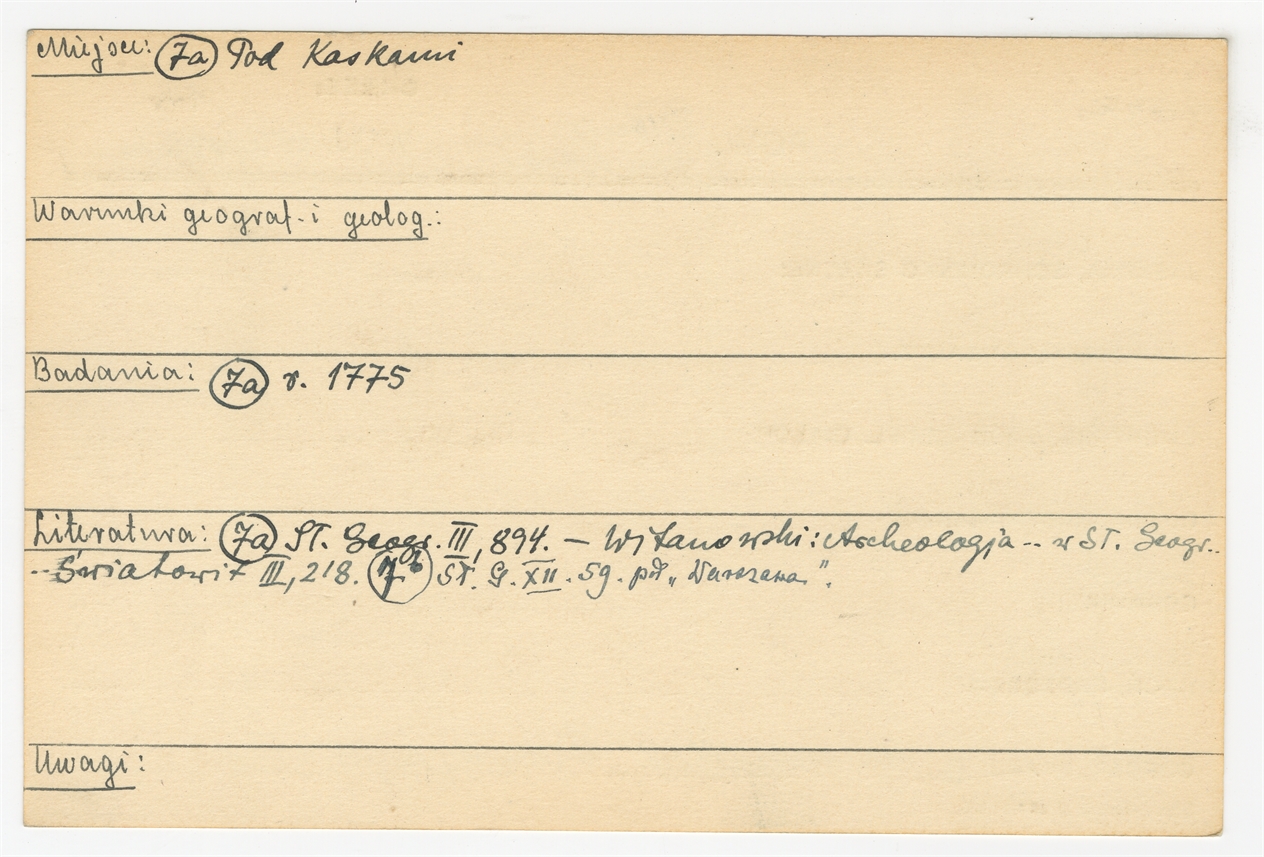 Miejsce: 7a Pod Kaskami
Warunki geograf. i geolog.:
Badania: 7a r. 1775
Literatura: 7a Sł. Geogr. III, 894. — Witanowski: Archeologja -- w Sł. Geogr..
-- Światowit III, 218. 7b Sł. G. XII. 59. pd „Warszawa”.
Uwagi: